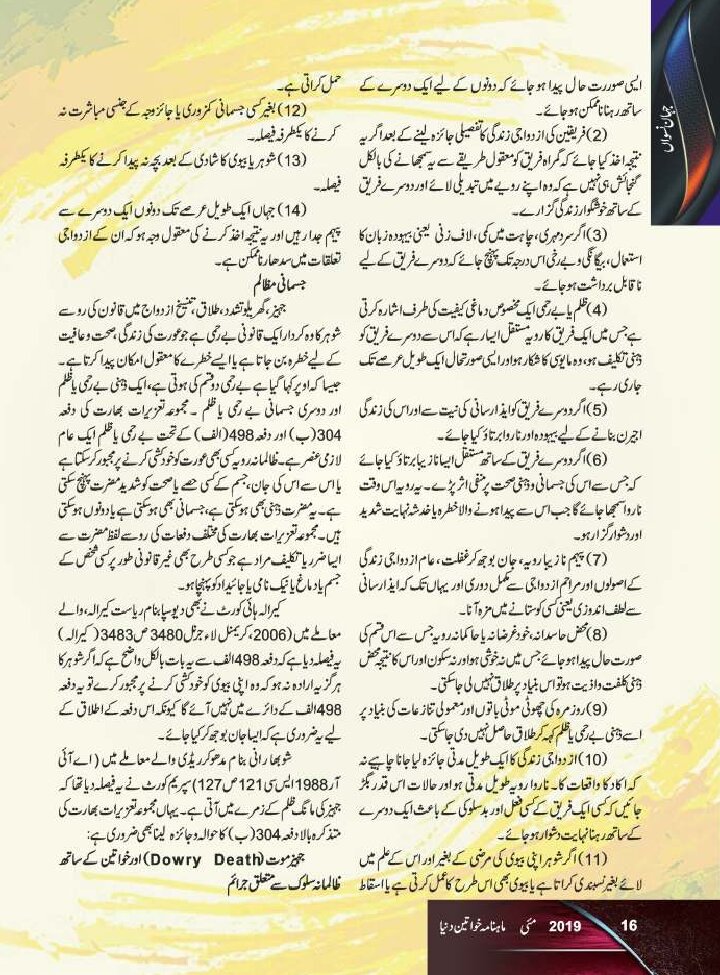 جہان نسواں
ایسی صورت حال پیدا ہو جائے کہ دونوں کے لیے ایک دوسرے کے
ساتھ رہنا ناممکن ہو جائے۔
(2) فریقین کی ازدواجی زندگی کا تفصیلی جائزہ لینے کے بعد اگر یہ
نتیجہ اخذ کیا جائے کہ گمراہ فریق کو معقول طریقے سے یہ سمجھانے کی بالکل
گنجائش ہی نہیں ہے کہ وہ اپنے رویے میں تبدیلی لائے اور دوسرے فریق
کے ساتھ خوشگوار زندگی گزارے۔
(3) اگر سرد مہری، چاہت میں کمی، لاف زنی یعنی بیہودہ زبان کا
استعمال، بیگانگی و بے رخی اس درجہ تک پہنچ جائے کہ دوسرے فریق کے لیے
ناقابل برداشت ہو جائے۔
(4) ظلم یا بے رحمی ایک مخصوص دماغی کیفیت کی طرف اشارہ کرتی
ہے جس میں ایک فریق کا رویہ مستقل ایسا رہے کہ اس سے دوسرے فریق کو
ذہنی تکلیف ہو، وہ مایوسی کا شکار ہو اور ایسی صورتحال ایک طویل عرصے تک
جاری رہے۔
(5) اگر دوسرے فریق کو ایذا رسانی کی نیت سے اور اس کی زندگی
اجیرن بنانے کے لیے بیہودہ اور ناروا برتاؤ کیا جائے۔
(6) اگر دوسرے فریق کے ساتھ مستقل ایسا نازیبا برتاؤ کیا جائے
کہ جس سے اس کی جسمانی و ذہنی صحت پر منفی اثر پڑے۔ یہ رویہ اس وقت
ناروا سمجھا جائے گا جب اس سے پیدا ہونے والا خطرہ یا خدشہ نہایت شدید
اور دشوار گزار ہو۔
(7) پیہم نازیبا رویہ، جان بوجھ کر غفلت، عام ازدواجی زندگی
کے اصولوں اور مراسم ازدواجی سے مکمل دوری اور یہاں تک کہ ایذا رسانی
سے لطف اندوزی یعنی کسی کو ستانے میں مزہ آنا۔
(8) محض حاسدانہ، خود غرضانہ یا حاکمانہ رویہ جس سے اس قسم کی
صورت حال پیدا ہو جائے جس میں نہ خوشی ہو اور نہ سکون اور اس کا نتیجہ محض
ذہنی کلفت و اذیت ہو تو اس بنیاد پر طلاق نہیں لی جا سکتی۔
(9) روزمرہ کی چھوٹی موٹی باتوں اور معمولی تنازعات کی بنیاد پر
اسے ذہنی بے رحمی یا ظلم کہہ کر طلاق حاصل نہیں کی جا سکتی۔
(10) ازدواجی زندگی کا ایک طویل مدتی جائزہ لیا جانا چاہیے نہ
کہ اکا دکا واقعات کا۔ ناروا رویہ طویل مدتی ہو اور حالات اس قدر بگڑ
جائیں کہ کسی ایک فریق کے کسی فعل اور بدسلوکی کے باعث ایک دوسرے
کے ساتھ رہنا نہایت دشوار ہو جائے۔
(11) اگر شوہر اپنی بیوی کی مرضی کے بغیر اور اس کے علم میں
لائے بغیر نسبندی کراتا ہے یا بیوی بھی اس طرح کا عمل کرتی ہے یا اسقاط
حمل کراتی ہے۔
(12) بغیر کسی جسمانی کمزوری یا جائز وجہ کے جنسی مباشرت نہ
کرنے کا یکطرفہ فیصلہ۔
(13) شوہر یا بیوی کا شادی کے بعد بچہ نہ پیدا کرنے کا یکطرفہ
فیصلہ۔
(14) جہاں ایک طویل عرصے تک دونوں ایک دوسرے سے
پیہم جدا رہیں اور یہ نتیجہ اخذ کرنے کی معقول وجہ ہو کہ ان کے ازدواجی
تعلقات میں سدھار ناممکن ہے۔
جسمانی مظالم
جہیز، گھریلو تشدد، طلاق، تنسیخ ازدواج میں قانون کی رو سے
شوہر کا وہ کردار ایک قانونی بے رحمی ہے جو عورت کی زندگی، صحت و عافیت
کے لیے خطرہ بن جاتا ہے یا ایسے خطرے کا معقول امکان پیدا کرتا ہے۔
جیسا کہ اوپر کہا گیا ہے بے رحمی دو قسم کی ہوتی ہے، ایک ذہنی بے رحمی یا ظلم
اور دوسری جسمانی بے رحمی یا ظلم۔ مجموعہ تعزیرات بھارت کی دفعہ
304(ب) اور دفعہ 498(الف) کے تحت بے رحمی یا ظلم ایک عام
لازمی عنصر ہے۔ ظالمانہ رویہ کسی بھی عورت کو خودکشی کرنے پر مجبور کر سکتا ہے
یا اس سے اس کی جان، جسم کے کسی حصے یا صحت کو شدید مضرت پہنچ سکتی
ہے۔ یہ مضرت ذہنی بھی ہو سکتی ہے، جسمانی بھی ہو سکتی ہے یا دونوں ہو سکتی
ہیں۔ مجموعہ تعزیرات بھارت کی مختلف دفعات کی رو سے لفظ مضرت سے
ایسا ضرر یا تکلیف مراد ہے جو کسی طرح بھی غیر قانونی طور پر کسی شخص کے
جسم یا دماغ یا نیک نامی یا جائیداد کو پہنچا ہو۔
کیرالہ ہائی کورٹ نے بھی دیوسیا بنام ریاست کیرالہ، والے
معاملے میں (2006، کریمنل لاء جرنل 3480 ص 3483 (کیرالہ)
یہ فیصلہ دیا ہے کہ دفعہ 498 الف سے یہ بات بالکل واضح ہے کہ اگر شوہر کا
ہرگز یہ ارادہ نہ ہو کہ وہ اپنی بیوی کو خودکشی کرنے پر مجبور کرے تو یہ دفعہ
498 الف کے دائرے میں نہیں آئے گا کیونکہ اس دفعہ کے اطلاق کے
لیے یہ ضروری ہے کہ ایسا جان بوجھ کر کیا جائے۔
شوبھا رانی بنام مدھوکر ریڈی والے معاملے میں (اے آئی
آر 1988 ایس سی 121 ص 127) سپریم کورٹ نے یہ فیصلہ دیا تھا کہ
جہیز کی مانگ ظلم کے زمرے میں آتی ہے۔ یہاں مجموعہ تعزیرات بھارت کی
متذکرہ بالا دفعہ 304(ب) کا حوالہ و جائزہ لینا بھی ضروری ہے:
جہیز موت (Dowry Death) اور خواتین کے ساتھ
ظالمانہ سلوک سے متعلق جرائم
ماہنامہ خواتین دنیا مئی 2019 16